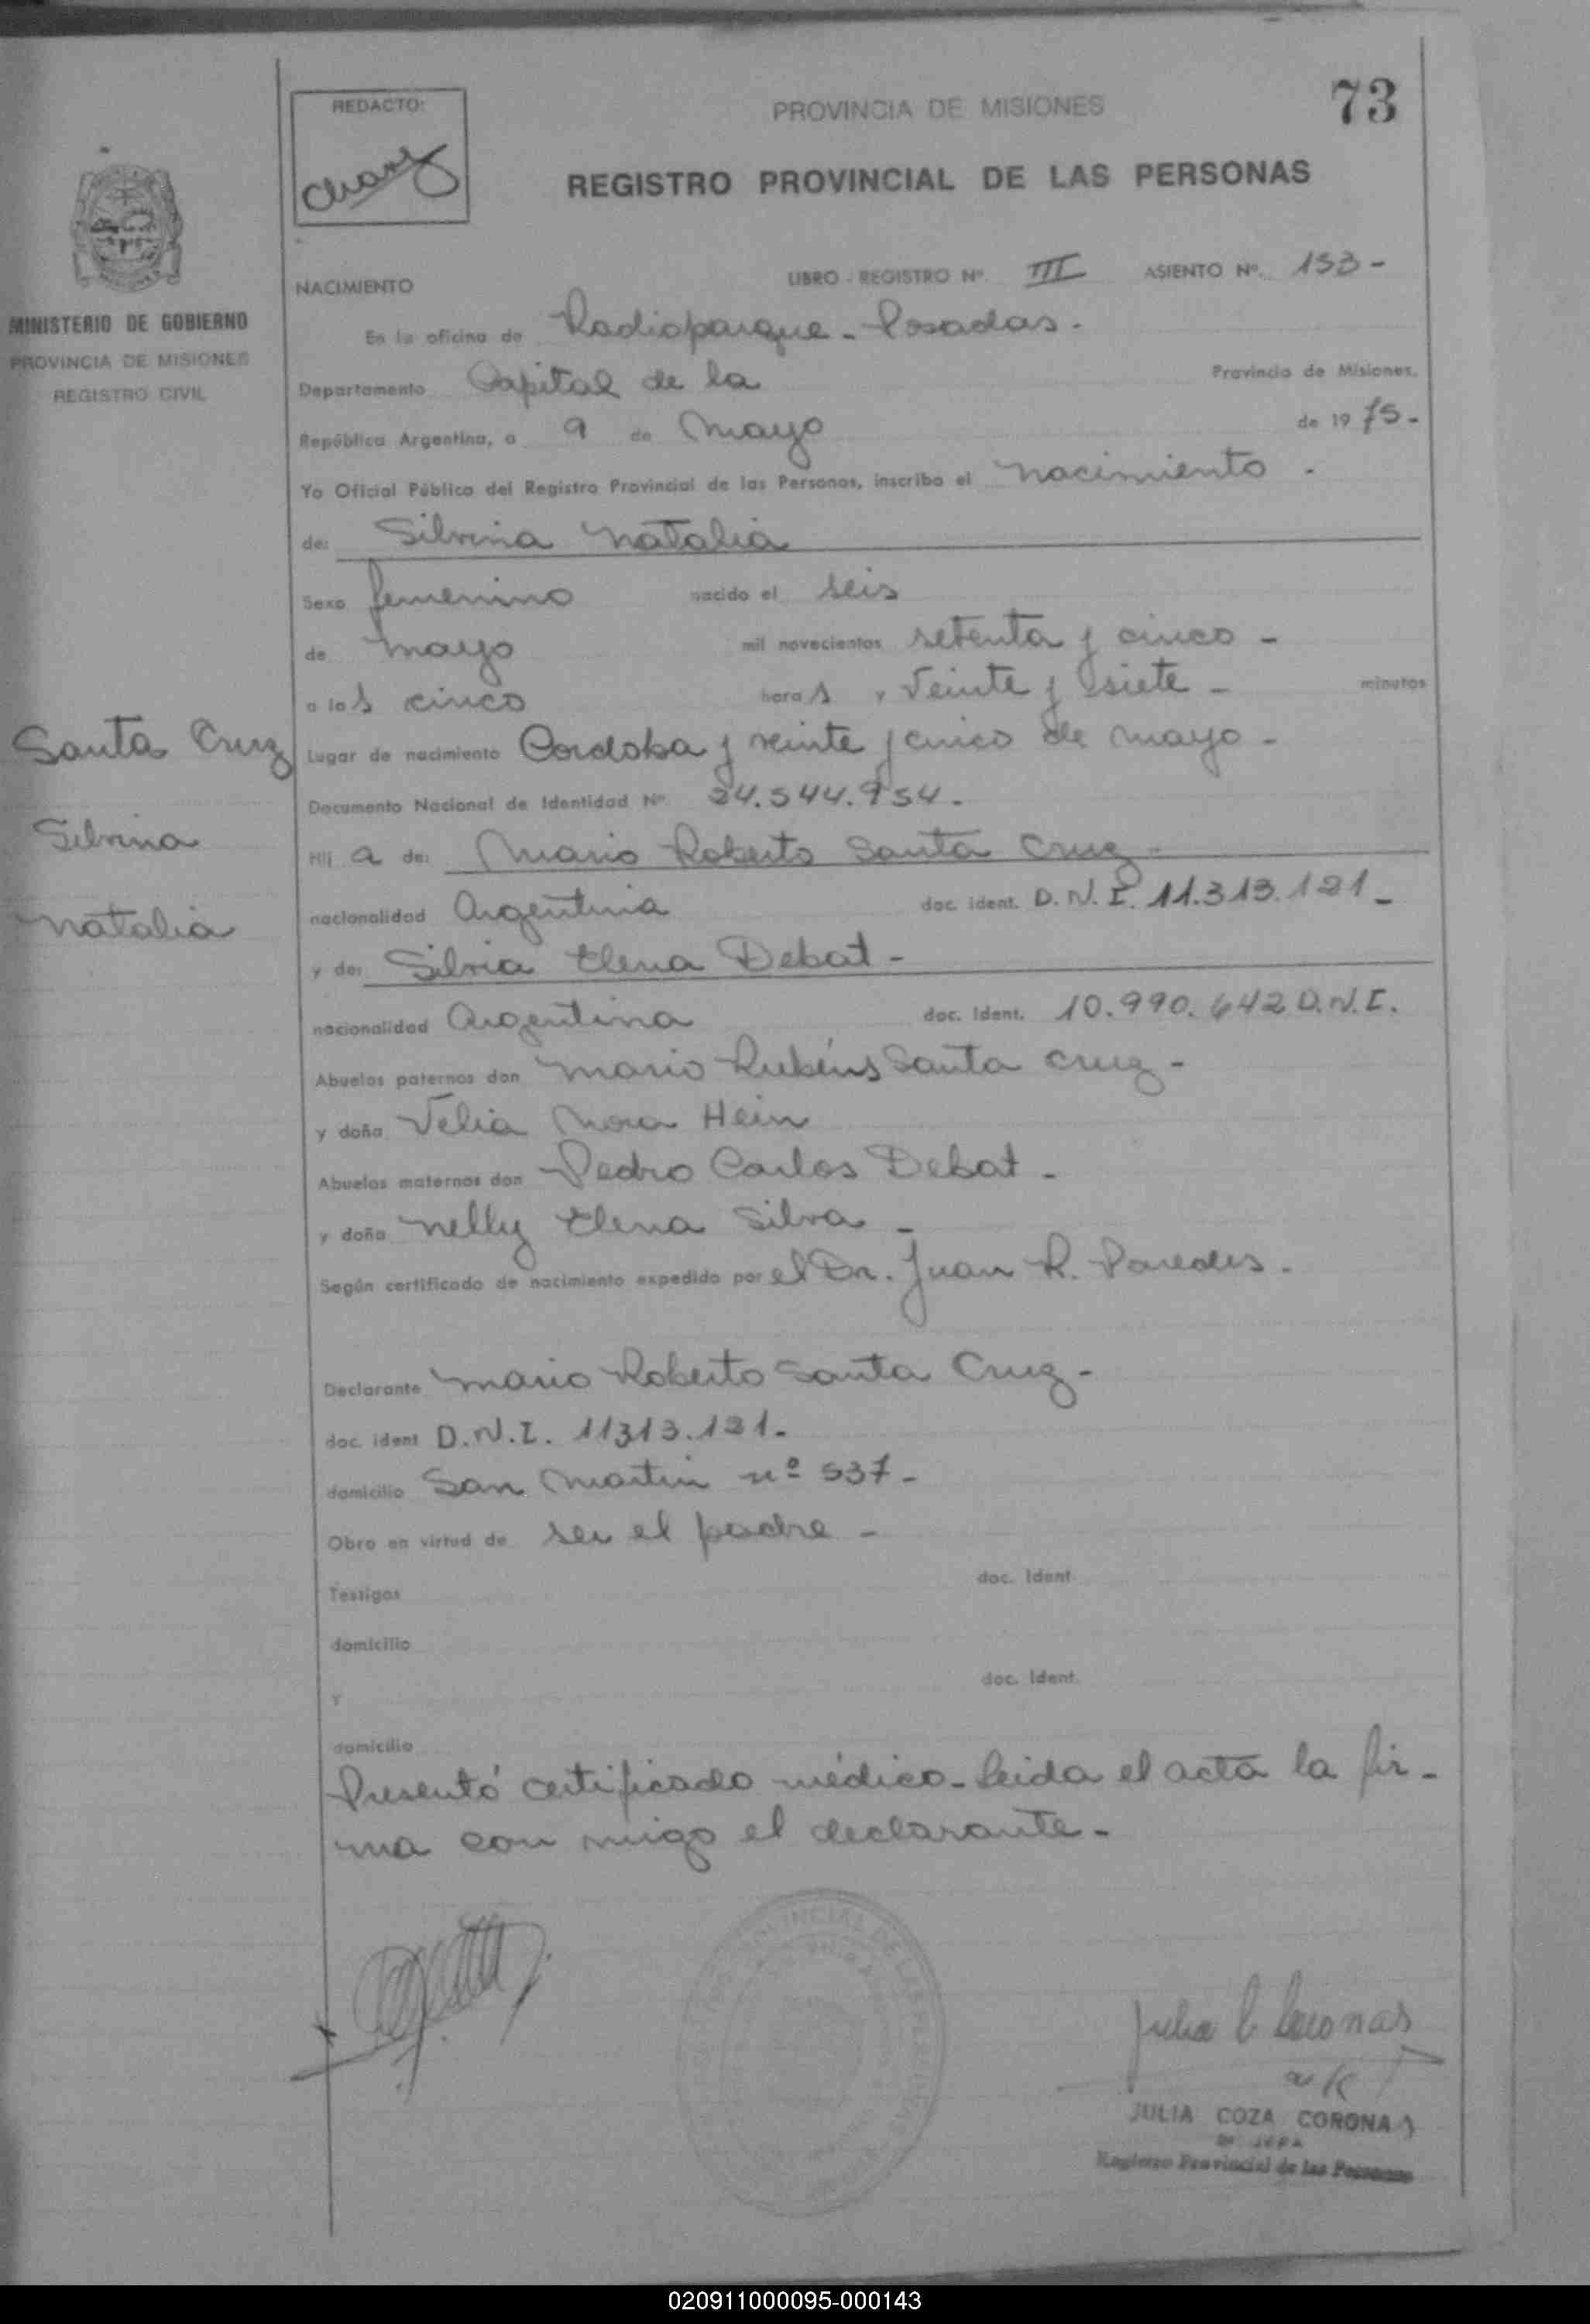 73
REDACTO:
PROVINCIA DE MISIONES
REGISTRO PROVINCIAL DE LAS PERSONAS
MINISTERIO DE GOBIERNO
PROVINCIA DE MISIONES
REGISTRO CIVIL
NACIMIENTO LIBRO - REGISTRO Nº. III ASIENTO Nº. 153 -
En la oficina de Radioparque - Posadas -
Departamento Capital de la Provincia de Misiones,
República Argentina, a 9 de Mayo de 19 75 -
Yo Oficial Público del Registro Provincial de las Personas, inscribo el nacimiento -
de: Silvina Natalia
Sexo femenino nacido el seis
de mayo mil novecientos setenta y cinco -
a las cinco horas y veinte y siete - minutos
Santa Cruz
Silvina
Natalia
Lugar de nacimiento Cordoba y veinte y cinco de mayo -
Documento Nacional de Identidad Nº 24.544.954.
Hij a de: Mario Roberto Santa Cruz -
nacionalidad Argentina doc. ident. D.N.I. 11.313.121 -
y de: Silvia Elena Debat -
nacionalidad Argentina doc. ident. 10.990.642 D.N.I.
Abuelos paternos don Mario Rubéns Santa Cruz -
y doña Velia Nora Hein
Abuelos maternos don Pedro Carlos Debat -
y doña Nelly Elena Silva -
Según certificado de nacimiento expedido por el Dr. Juan R. Paredes -
Declarante Mario Roberto Santa Cruz -
doc. ident D.N.I. 11313.121 -
domicilio San Martin nº 537 -
Obra en virtud de ser el padre -
Testigos doc. ident.
domicilio
Y doc. ident.
domicilio
Presentó certificado médico - Leida el acta la fir-
ma con migo el declarante -
JULIA COZA CORONAS
Registro Provincial de las Personas
020911000095-000143